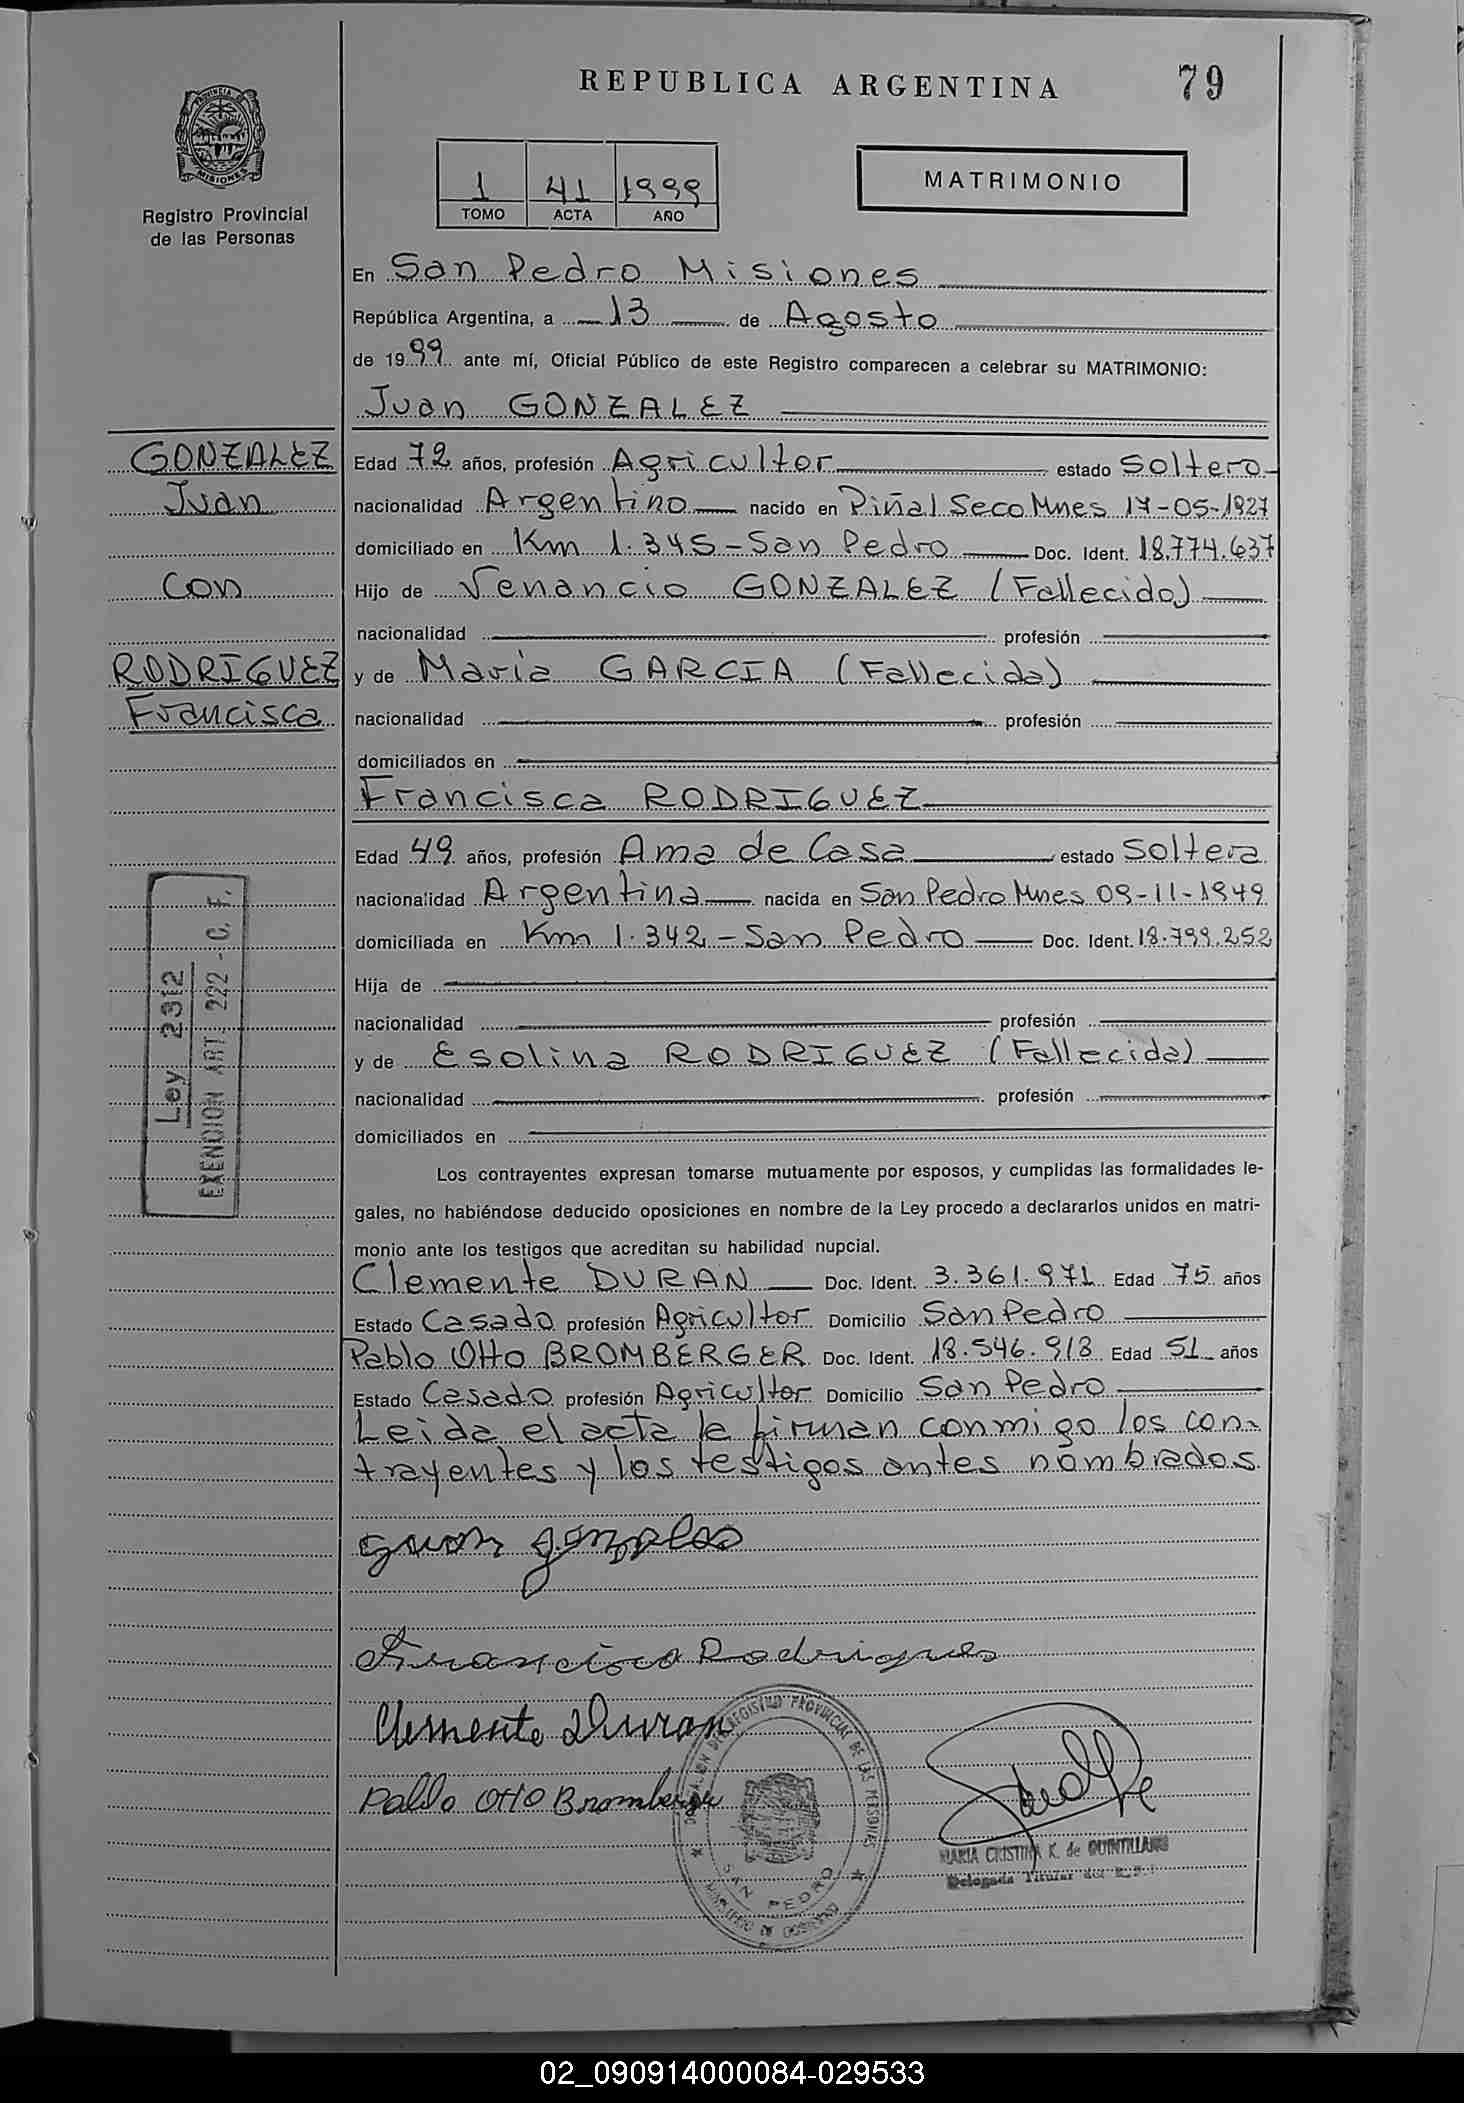 REPUBLICA ARGENTINA
79
PROVINCIA DE MISIONES
Registro Provincial
de las Personas
1 41 1999
TOMO ACTA AÑO
MATRIMONIO
En San Pedro Misiones
República Argentina, a 13 de Agosto
de 1999 ante mí, Oficial Público de este Registro comparecen a celebrar su MATRIMONIO:
Juan GONZALEZ
GONZALEZ
Juan
con
RODRIGUEZ
Francisca
Edad 72 años, profesión Agricultor estado Soltero
nacionalidad Argentino nacido en Piñal Seco Mnes 17-05-1927
domiciliado en Km 1.345-San Pedro Doc. Ident. 18.774.637
Hijo de Venancio GONZALEZ (Fallecido)
nacionalidad profesión
y de Maria GARCIA (Fallecida)
nacionalidad profesión
domiciliados en
Francisca RODRIGUEZ
Edad 49 años, profesión Ama de Casa estado Soltera
nacionalidad Argentina nacida en San Pedro Mnes 09-11-1949
domiciliada en Km 1.342-San Pedro Doc. Ident. 18.799.252
Hija de
nacionalidad profesión
y de Esolina RODRIGUEZ (Fallecida)
nacionalidad profesión
domiciliados en
Ley 2312
EXENCION ART. 222 - C. F.
Los contrayentes expresan tomarse mutuamente por esposos, y cumplidas las formalidades le-
gales, no habiéndose deducido oposiciones en nombre de la Ley procedo a declararlos unidos en matri-
monio ante los testigos que acreditan su habilidad nupcial.
Clemente DURAN Doc. Ident. 3.361.971 Edad 75 años
Estado Casado profesión Agricultor Domicilio San Pedro
Pablo Otto BROMBERGER Doc. Ident. 18.546.913 Edad 51 años
Estado Casado profesión Agricultor Domicilio San Pedro
Leida el acta la firman conmigo los con-
trayentes y los testigos antes nombrados.
Juan Gonzales
Francisca Rodrigues
Clemente Duran
Pablo Otto Bromberger
DELEGACION DEL REGISTRO PROVINCIAL DE LAS PERSONAS
SAN PEDRO
MINISTERIO DE GOBIERNO
MARIA CRISTINA K. de QUINTILLANO
Delegada Titular del R.P.P.
02_090914000084-029533